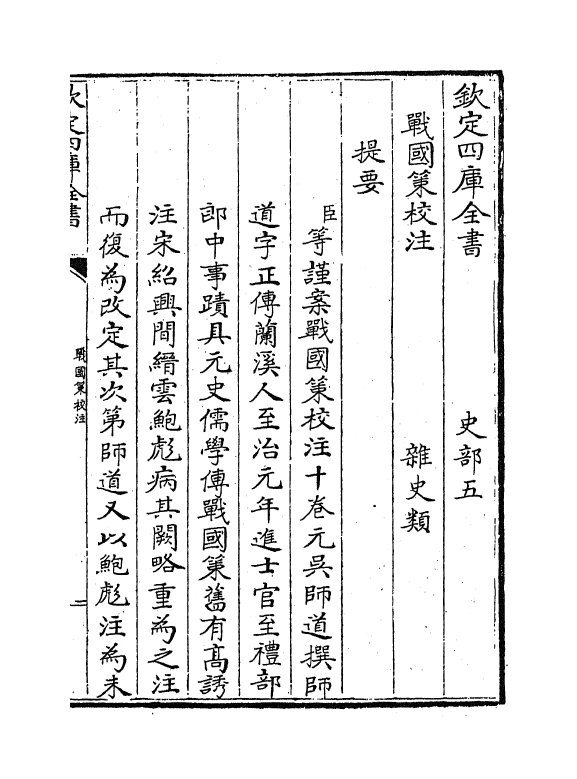 欽定四庫全書　史部五
戰國策校注　雜史類
提要
臣等謹案戰國策校注十卷元吳師道撰師
道字正傳蘭溪人至治元年進士官至禮部
郎中事蹟具元史儒學傳戰國策舊有髙誘
注宋紹興間縉雲鮑彪病其闕略重為之注
而復為改定其次第師道又以鮑彪注為未
欽定四庫全書　戰國策校注　一